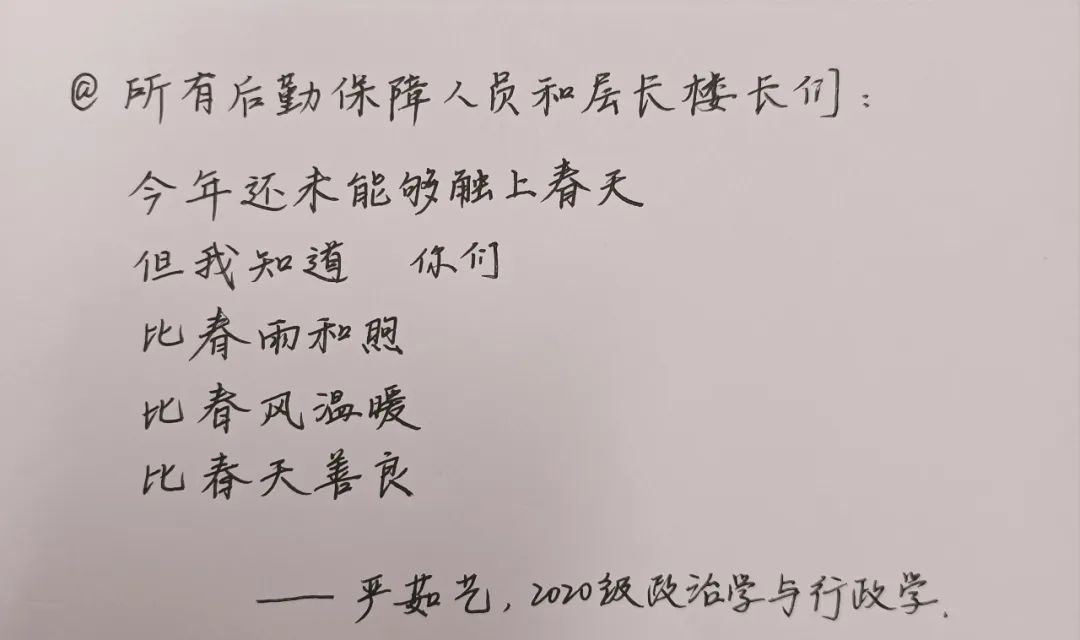 @所有后勤保障人员和层长楼长们：
今年还未能够触上春天
但我知道 你们
比春雨和煦
比春风温暖
比春天善良
——严茹艺，2020级政治学与行政学.